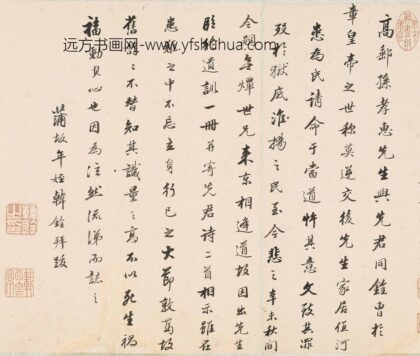 高郵孫孝惠先生與先君同鎦曹於
章皇帝之世称莫逆交後先生家居值河
患為民請命于當道忤其意文致其罪
殁於獄底淮揚之民至今悲之辛未秋間
令嗣無燀世兄来京相逢道故因出先生
臨終道訓一冊并寄先君詩二首相示雖在
患難之中不忘立身行己之大節敦篤故
舊諄諄不替知其識量之高不以死生禍
福動其心也因為泫然流涕而誌之
蒲坂年姪韓銓拜跋
远方书画网-www.yfshuhua.com